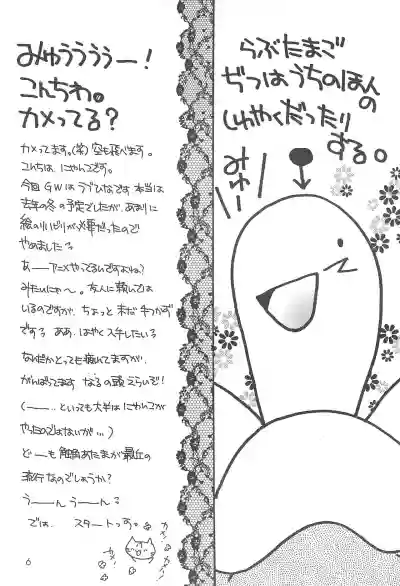 みゅううううー!
こんちわ。
カメってる?
カメってます。(笑)空も飛べます。
こんちは にゃんこです。
今回GWはラブひなです 本当は
去年の冬の予定でしたが、あまりに
絵のリハビリが必要だったので
やめました
あーーアニメやってるいですよね?
みたいにゃ〜。友人に頼んでは
いるのですが、ちょっと まだ手つかず
です? ああ、はやくスキしたいる
なんだかとっても疲れてますが、
がんばってます なるの頭えらいで!
(ー…といっても大半はにゃんこが
やったのではないが…)
どーも 触角あたまが最近の
流行なのでしょうか?
うーんうーん?
では、スタートっす。
6
らぶたまご
ぢつはうちのほんの
しゅやくだったり
する。
みゅー